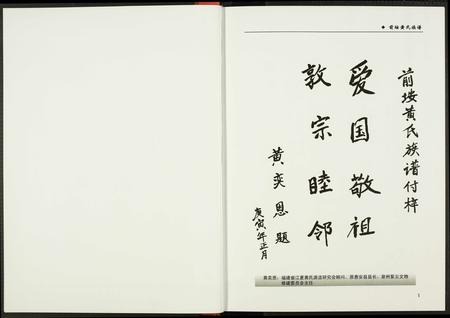 ◆ 前垵黄氏族谱
前垵黄氏族谱付梓
爱国敬祖
敦宗睦邻
黄奕恩题
庚寅年正月
黄奕恩:福建省江夏黄氏源流研究会顾问、原惠安县县长、泉州紫云文物修建委员会主任
1